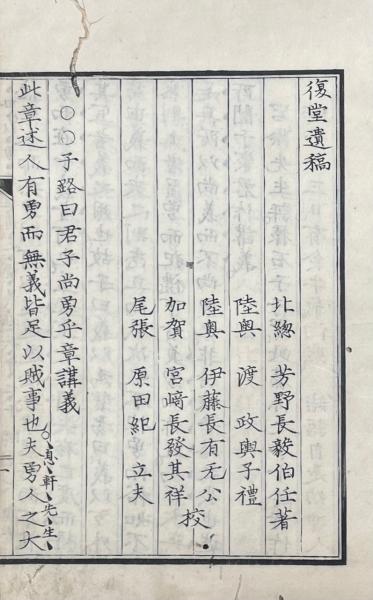 復堂遺稿
北總 芳野長毅伯任著
陸奥 渡 政輿子禮
陸奥 伊藤長有无公
加賀 宮﨑長發其祥 校
尾張 原田紀 立夫
○○子路曰君子尚勇乎章講義
此章述人有勇而無義皆足以賊事也夫勇人之大
○息軒先生